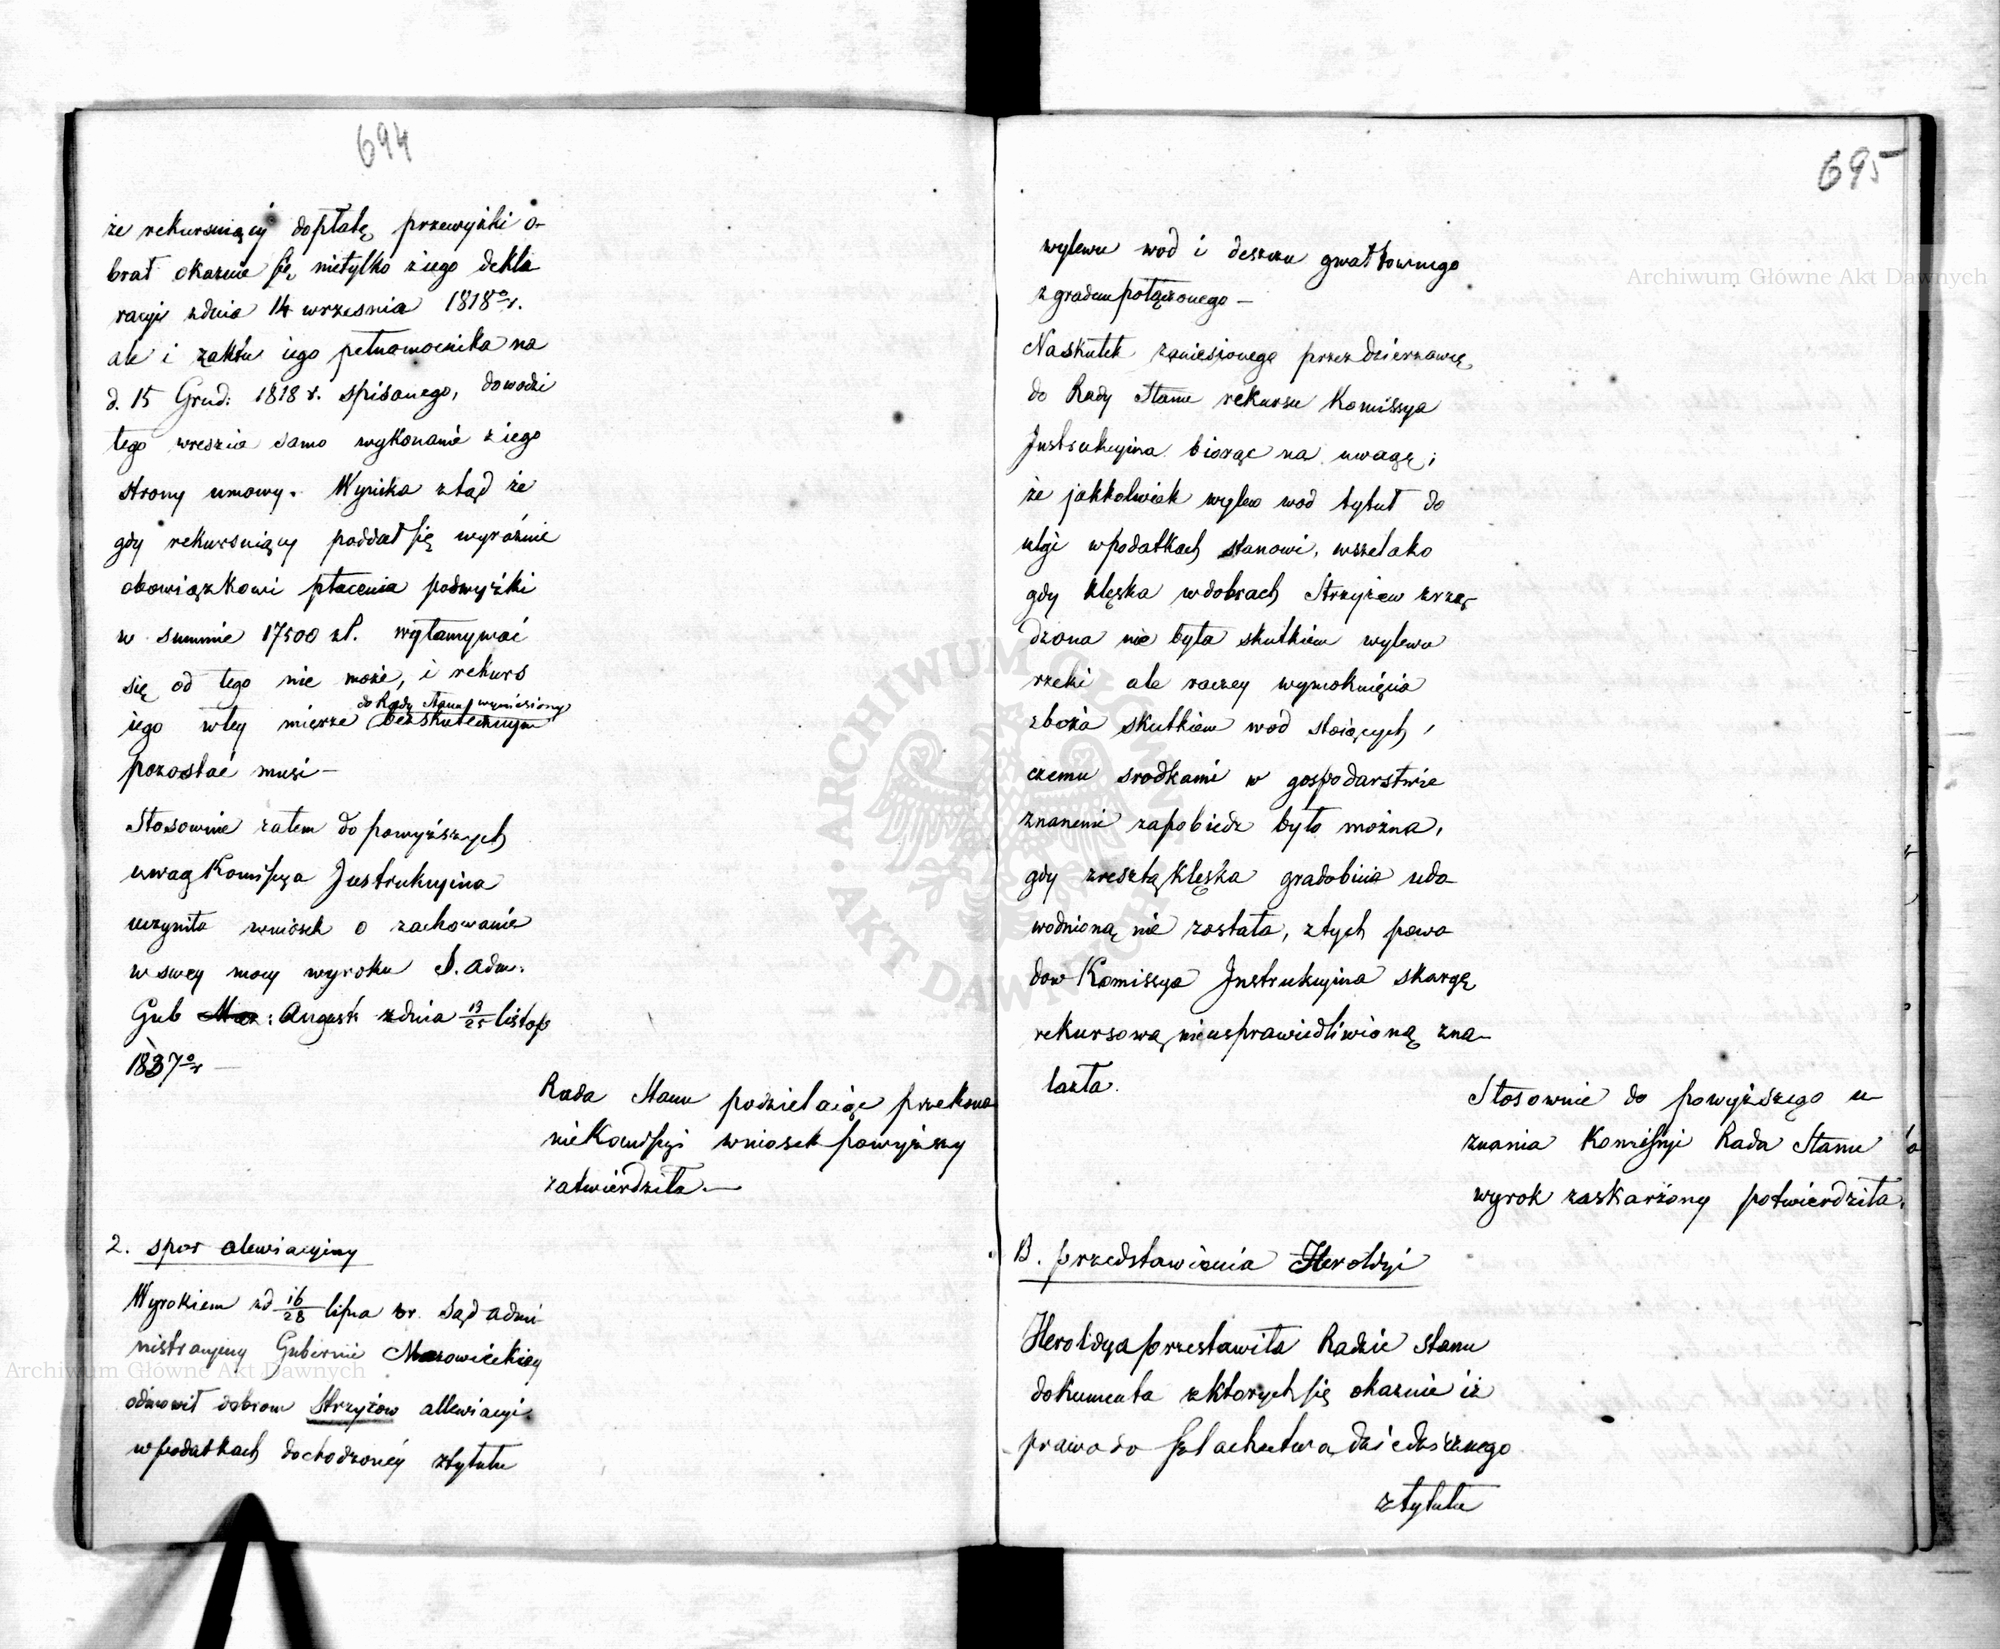 694
że rekursuiący dopłatę przewyżki o-
brał okazuie się nietylko z iego dekla
racyi zdnia 14 września 1818º r.
ale i zaktu iego pełnomocnika na
d. 15 Grud: 1818 r. spisanego, dowodzi
tego wreszcie samo wykonanie z iego
strony umowy. Wynika ztąd że
gdy rekursuiący poddał się wyraźnie
obowiązkowi płacenia podwyżki
w summie 17500 zł. wyłamywać
się od tego nie może, i rekurs
do Rady Stanu wyniesiony
iego wtey mierze bezskutecznym
pozostać musi —
Stosownie zatem do powyższych
uwag Komissya Instrukcyina
uczyniła wniosek o zachowanie
w swey mocy wyroku S. Adm.
Gub Maz: August: zdnia 13/25 listop
1837º r —
Rada Stanu podzielaiąc przekona
nie Komissyi wniosek powyższy
zatwierdziła. —
2. spor alewiacyiny
Wyrokiem zd 16/28 lipca br. Sąd admi
nistracyiny Gubernii Mazowieckiey
odmowił dobrom Strzyżew allewiacyi
w podatkach dochodzoney ztytułu
695
wylewu wod i deszczu gwałtownego
z gradem połączonego —
Naskutek zaniesionego przez dzierzawcę
do Rady Stanu rekursu Komissya
Instrukcyina biorąc na uwagę;
że jakkolwiek wylew wod tytuł do
ulgi w podatkach stanowi, wszelako
gdy klęska w dobrach Strzyżew zrzą-
dzona nie była skutkiem wylewu
rzeki ale raczey wymoknięcia
zboża skutkiem wod stoiących,
czemu srodkami w gospodarstwie
znanemi zapobiedz było można,
gdy zresztą klęska gradobicia udo-
wodnioną nie została, ztych powo
dow Komissya Instrukcyina skargę
rekursową nieusprawiedliwioną zna-
lazła.
Stosownie do powyższego u-
znania Komissyi Rada Stanu
wyrok zaskarżony potwierdziła.
B. przedstawienia Heroldyi
Heroldya przestawiła Radzie Stanu
dokumenta z ktorych się okazuie iż
prawo do szlachectwa dziedzicznego
z tytułu
Archiwum Główne Akt Dawnych
Archiwum Główne Akt Dawnych
ARCHIWUM GŁÓWNE · AKT DAWNYCH